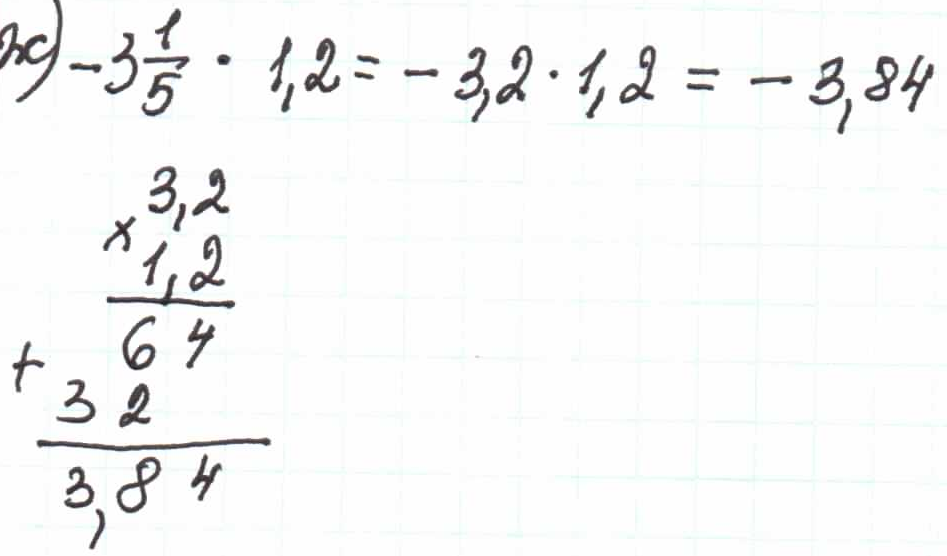 ж) -3 1/5 · 1,2 = - 3,2 · 1,2 = - 3,84
3,2
× 1,2
64
+ 32
3,84